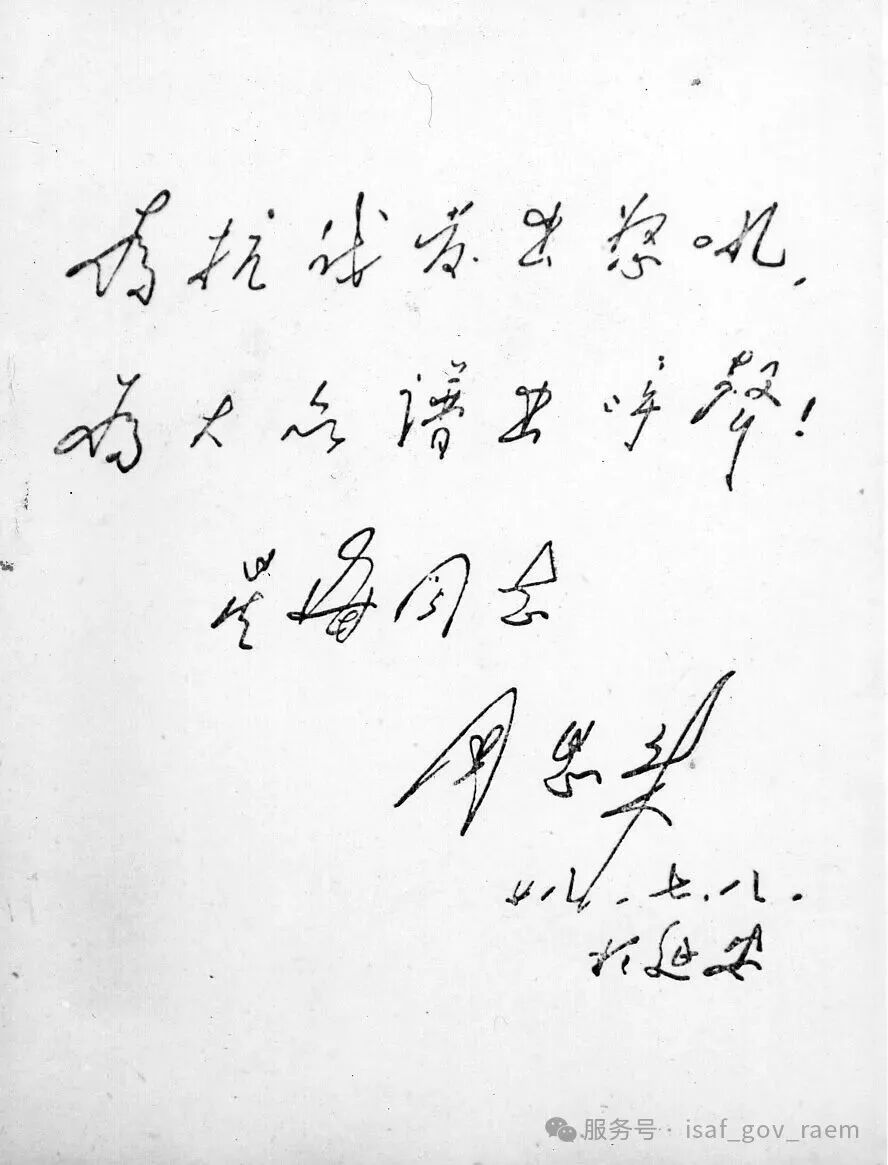 為抗战发出怒吼，
為大众谱出呼聲！
星海同志
周恩来
廿八.七.八.
於延安
服务号 · isaf_gov_raem